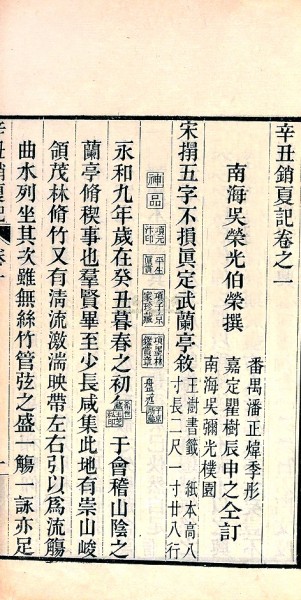 辛丑銷夏記卷之一
南海吳榮光伯榮撰
番禺潘正煒季彤
嘉定瞿樹辰申之仝訂
南海吳彌光樸園
宋搨五字不損眞定武蘭亭敘
王澍書籤 紙本高八
寸長二尺一寸廿八行
神品
項元汴印
平生眞賞
項子京家珍藏
項墨林鑑賞章
永和九年歲在癸丑暮春之初 于會稽山陰之
蘭亭脩稧事也羣賢畢至少長咸集此地有崇山峻
領茂林脩竹又有清流激湍映帶左右引以爲流觴
曲水列坐其次雖無絲竹管弦之盛一觴一詠亦足